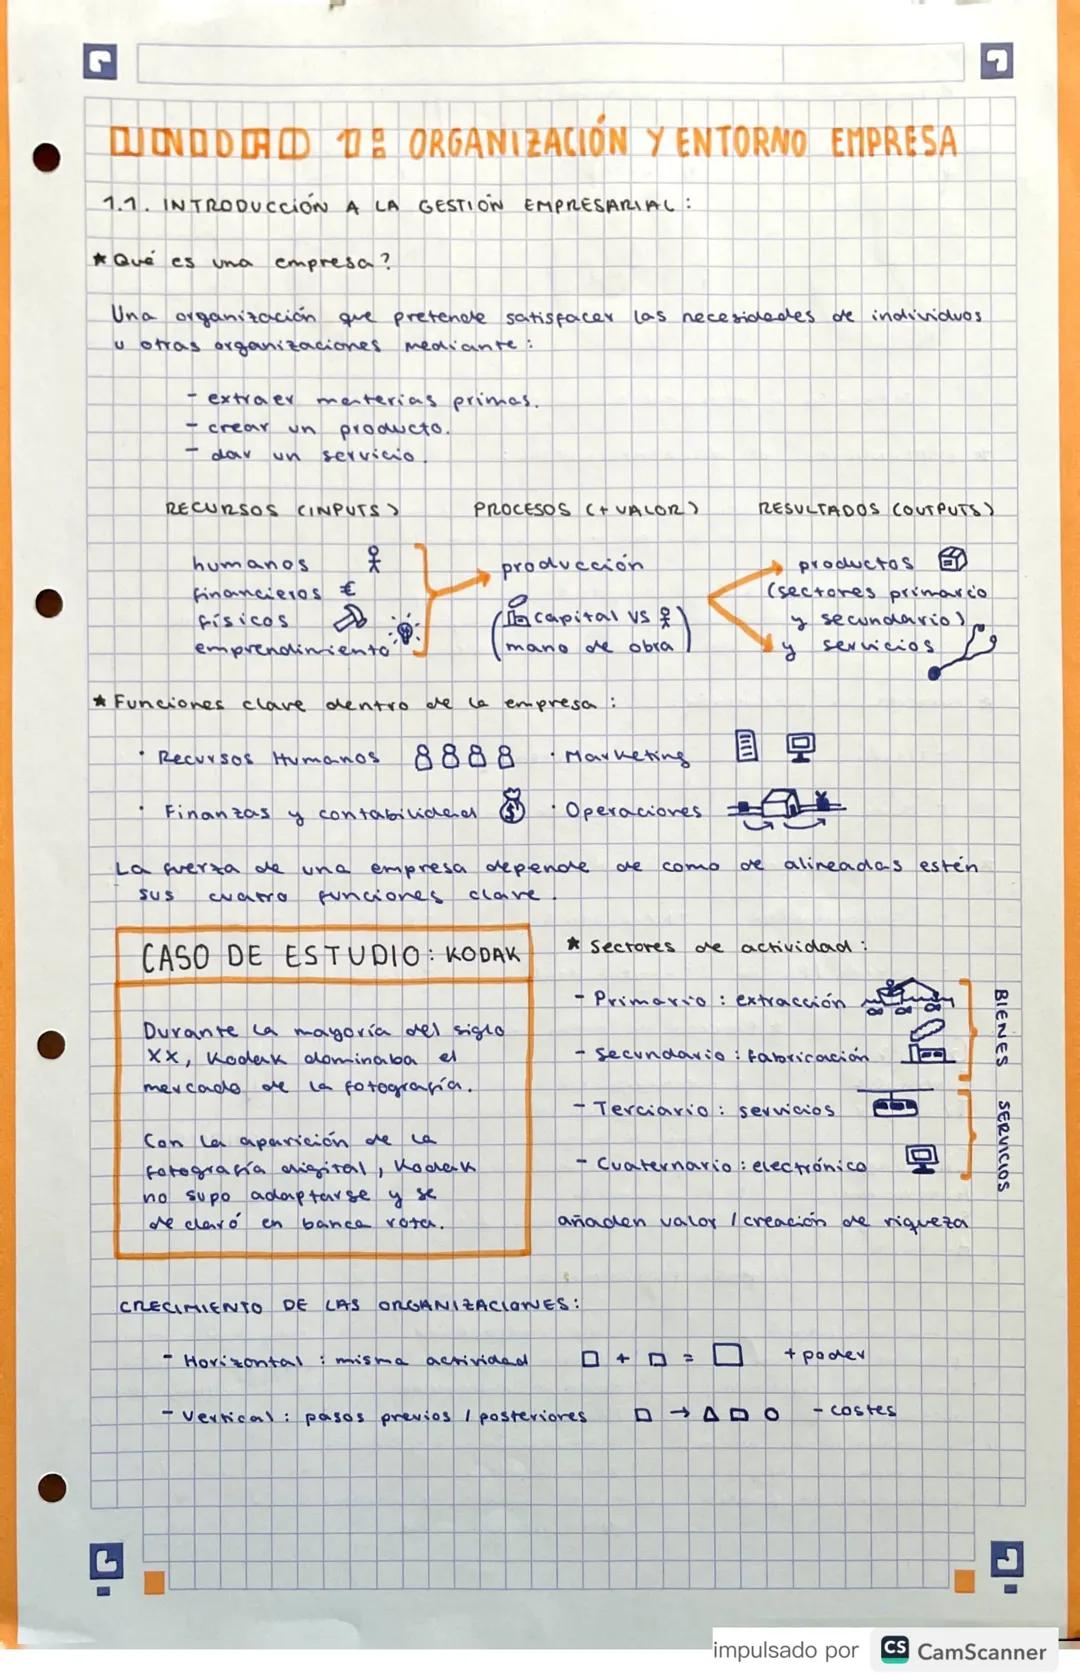 UNIDAD 1: ORGANIZACIÓN Y ENTORNO EMPRESA
1.1. INTRODUCCIÓN A LA GESTIÓN EMPRESARIAL:
* Qué es una empresa?
Una organización que pretende satisfacer las necesidades de individuos
u otras organizaciones mediante:
- extraer materias primas.
- crear un producto.
- dar un servicio.
RECURSOS (INPUTS)
humanos
financieros €
físicos
emprendimiento
PROCESOS (+ VALOR)
producción
(capital VS
mano de obra)
RESULTADOS (OUTPUTS)
productos
(sectores primario
y secundario)
y servicios
* Funciones clave dentro de la empresa:
· Recursos Humanos
· Marketing
· Finanzas y contabilidad $
· Operaciones
La fuerza de una empresa depende de como de alineadas estén
sus cuatro funciones clave.
CASO DE ESTUDIO: KODAK
Durante la mayoría del siglo
XX, Kodak dominaba el
mercado de la fotografía.
Con la aparición de la
fotografía digital, Kodak
no supo adaptarse y se
declaró en banca rota.
* Sectores de actividad:
- Primario: extracción
- Secundario: fabricación
BIENES
- Terciario: servicios
- Cuaternario: electrónico
SERVICIOS
añaden valor / creación de riqueza
CRECIMIENTO DE LAS ORGANIZACIONES:
- Horizontal: misma actividad □ + □ = □ + poder
- Vertical: pasos previos / posteriores □ → △ □ ○ - costes
impulsado por CS CamScanner